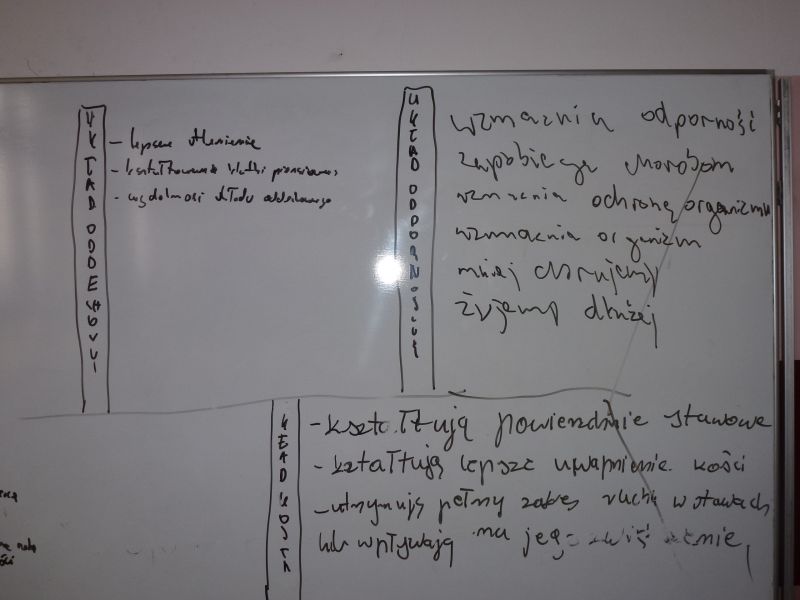 UKŁAD ODDECHOWY
- lepsze tlenienie
- kształtowanie klatki piersiowej
- wydolność układu oddechowego
UKŁAD ODPORNOŚCIOWY
wzmacnia odporność
zapobiega chorobom
wzmacnia ochronę organizmu
wzmacnia organizm
mniej chorujemy
żyjemy dłużej
UKŁAD KOSTN
- kształtują powierzchnie stawowe
- kształtują lepsze uwapnienie kości
- utrzymują pełny zakres ruchu w stawach
lub wpływają na jego